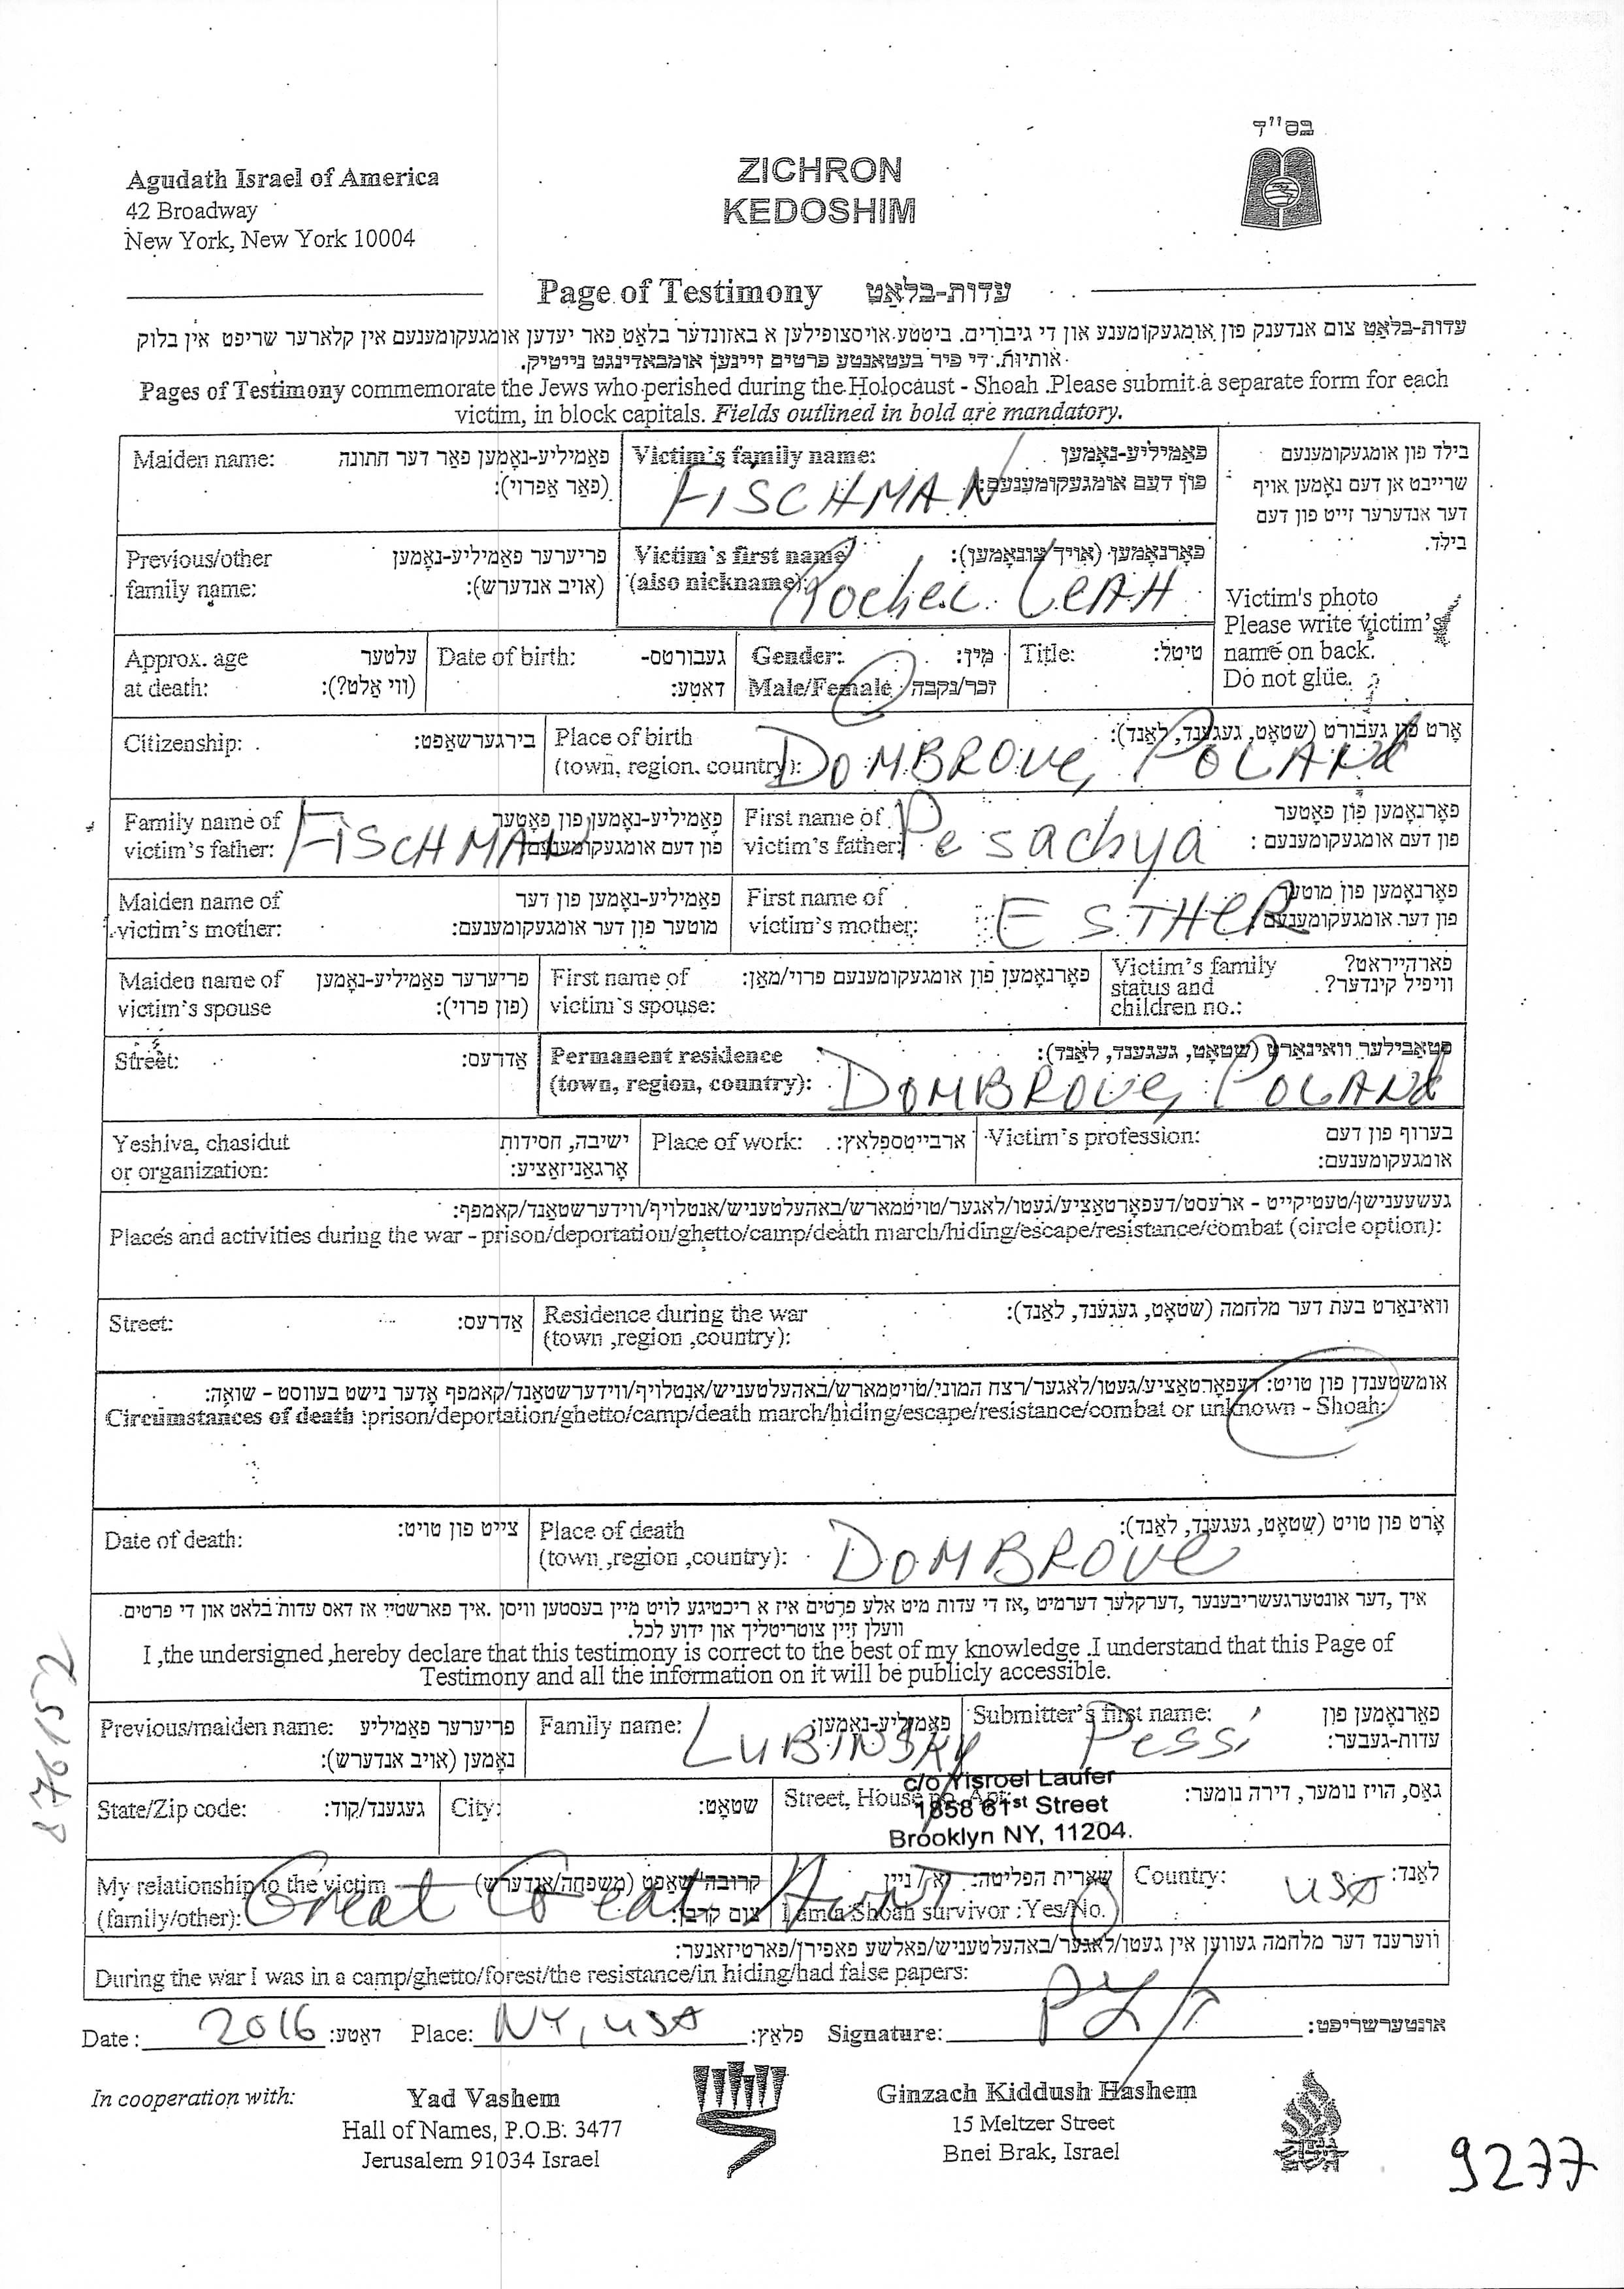 בס"ד
Agudath Israel of America
42 Broadway
New York, New York 10004
ZICHRON
KEDOSHIM
Page of Testimony עדות-בלאַט
עדות-בלאַט צום אנדענק פון אומגעקומענע און די גיבורים. ביטטע אויסצופילען א באזונדער בלאט פאר יעדען אומגעקומענעם אין קלארער שריפט אין בלוק
אותיות. די פיר בעטאנטע פרטים זיינען אומבאדינגט נייטיק.
Pages of Testimony commemorate the Jews who perished during the Holocaust - Shoah .Please submit a separate form for each
victim, in block capitals. Fields outlined in bold are mandatory.
Maiden name: פאַמיליע-נאָמען פאַר דער חתונה
(פאַר אַפרוי):
Victim's family name: פאַמיליע-נאָמען
פון דעם אומגעקומענעם:
FISCHMAN
בילד פון אומגעקומענעם
שרייבט אן דעם נאָמען אויף
דער אנדערער זייט פון דעם
בילד.
Victim's photo
Please write victim's
name on back.
Do not glue.
Previous/other פריערער פאַמיליע-נאָמען
family name: (אויב אנדערש):
Victim's first name פאָרנאָמען (אויך צונאָמען):
(also nickname): Rochel LeAH
Approx. age עלטער
at death: (ווי אַלט?):
Date of birth: געבורטס-
דאַטע:
Gender: מין:
Male/Female זכר/נקבה
Title: טיטל:
Citizenship: בירגערשאַפט:
Place of birth אָרט פון געבורט (שטאָט, געגענד, לאַנד):
(town, region. country): DOMBROVe, POLANd
Family name of פאַמיליע-נאָמען פון פאָטער
victim's father: פון דעם אומגעקומענעם:
FISCHMAN
First name of פאָרנאָמען פון פאָטער
victim's father: פון דעם אומגעקומענעם :
Pesachya
Maiden name of פאַמיליע-נאָמען פון דער
victim's mother: מוטער פון דער אומגעקומענעם:
First name of פאָרנאָמען פון מוטער
victim's mother: פון דער אומגעקומענעם
ESTHeR
Maiden name of פריערער פאַמיליע-נאָמען
victim's spouse (פון פרוי):
First name of פאָרנאָמען פון אומגעקומענעם פרוי/מאַן:
victim's spouse:
Victim's family פארהייראט?
status and וויפיל קינדער?
children no.:
Street: אַדרעס:
Permanent residence סטאַבילער וואוינאָרט (שטאָט, געגענד, לאַנד):
(town, region, country): DOMBROVe, POLANd
Yeshiva, chasidut ישיבה, חסידות
or organization: אָרגאַניזאַציע:
Place of work: ארבייטספלאַץ:
Victim's profession: בערוף פון דעם
אומגעקומענעם:
געשעענישן/טעטיקייט - ארעסט/דעפארטאַציע/געטו/לאגער/טויטמארש/באהעלטעניש/אנטלויף/ווידערשטאַנד/קאמפף:
Places and activities during the war - prison/deportation/ghetto/camp/death march/hiding/escape/resistance/combat (circle option):
Street: אַדרעס:
Residence during the war וואוינאָרט בעת דער מלחמה (שטאָט, געגענד, לאַנד):
(town ,region ,country):
אומשטענדן פון טויט: דעפארטאַציע/געטו/לאגער/רצח המוני/טויטמארש/באהעלטעניש/אנטלויף/ווידערשטאַנד/קאמפף אָדער נישט בעווסט - שואה:
Circumstances of death :prison/deportation/ghetto/camp/death march/hiding/escape/resistance/combat or unknown - Shoah:
Date of death: צייט פון טויט:
Place of death אָרט פון טויט (שטאָט, געגענד, לאַנד):
(town ,region ,country): DOMBROVe
איך ,דער אונטערגעשריבענער ,דערקלער דערמיט ,אז די עדות מיט אלע פרטים איז א ריכטיגע לויט מיין בעסטען וויסן .איך פארשטיי אז דאס עדות בלאט און די פרטים
וועלן זיין צוטריטליך און ידוע לכל.
I ,the undersigned ,hereby declare that this testimony is correct to the best of my knowledge .I understand that this Page of
Testimony and all the information on it will be publicly accessible.
Previous/maiden name: פריערער פאַמיליע
נאָמען (אויב אנדערש):
Family name: פאַמיליע-נאָמען:
LUBINSKY
Submitter's first name: פאָרנאָמען פון
עדות-געבער:
Pessi
State/Zip code: געגענד/קוד:
City: שטאָט:
Street, House no. Apt: גאַס, הויז נומער, דירה נומער:
c/o Yisroel Laufer
1858 61st Street
Brooklyn NY, 11204.
My relationship to the victim קרובה'שאַפט (משפחה/אַנדערש)
(family/other): צום קרבן:
Great Great Aunt
שארית הפליטה: יא/ניין
I am a Shoah survivor :Yes/No.
Country: לאַנד:
USA
ווערענד דער מלחמה געווען אין געטו/לאגער/באהעלטעניש/פאלשע פאפירן/פארטיזאנער:
During the war I was in a camp/ghetto/forest/the resistance/in hiding/had false papers:
Date : 2016 דאַטע: Place: NY, USA פלאַץ: Signature: אונטערשריפט:
In cooperation with:
Yad Vashem
Hall of Names, P.O.B: 3477
Jerusalem 91034 Israel
Ginzach Kiddush Hashem
15 Meltzer Street
Bnei Brak, Israel
9277
876152